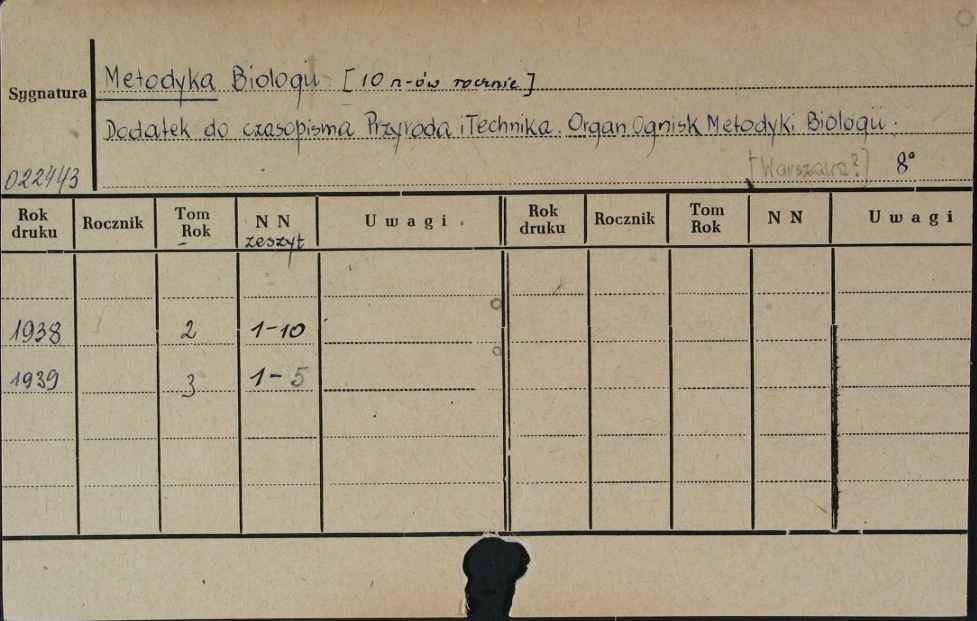 Sygnatura
Metodyka Biologii [10 n-ów rocznie]
Dodatek do czasopisma Przyroda i Technika. Organ Ognisk Metodyki Biologii.
[Warszawa?] 8°
022443
Rok druku Rocznik Tom Rok N N zeszyt Uwagi. Rok druku Rocznik Tom Rok N N Uwagi
1938 2 1-10
1939 3 1-5